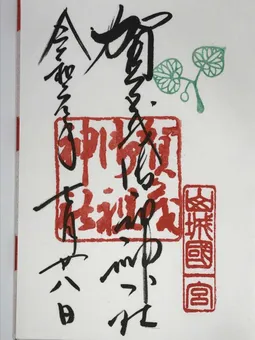 賀茂御祖神社
令和元年 月廿八日
賀茂
御祖
神社
山城國
一宮